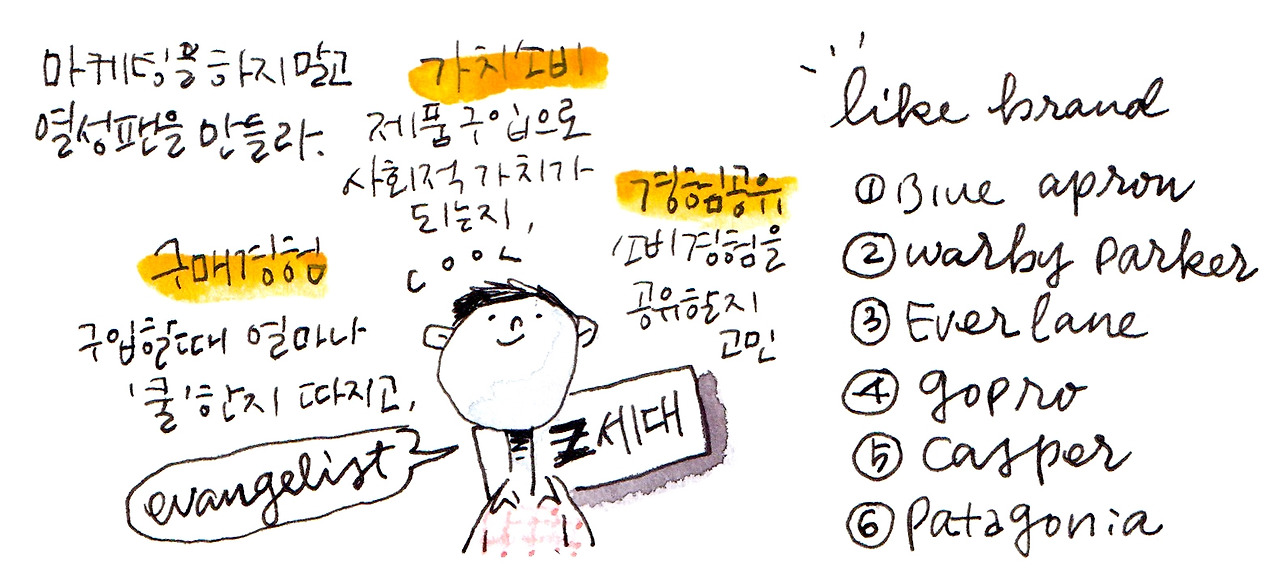 마케팅을 하지 말고
열성팬을 만들라.
구매경험
구입할때 얼마나
'쿨'한지 따지고,
가치소비
제품구입으로
사회적 가치가
되는지,
cool
경험공유
소비경험을
공유할지
고민
Z세대
evangelist
like brand
① Blue apron
② warby parker
③ Everlane
④ gopro
⑤ casper
⑥ patagonia